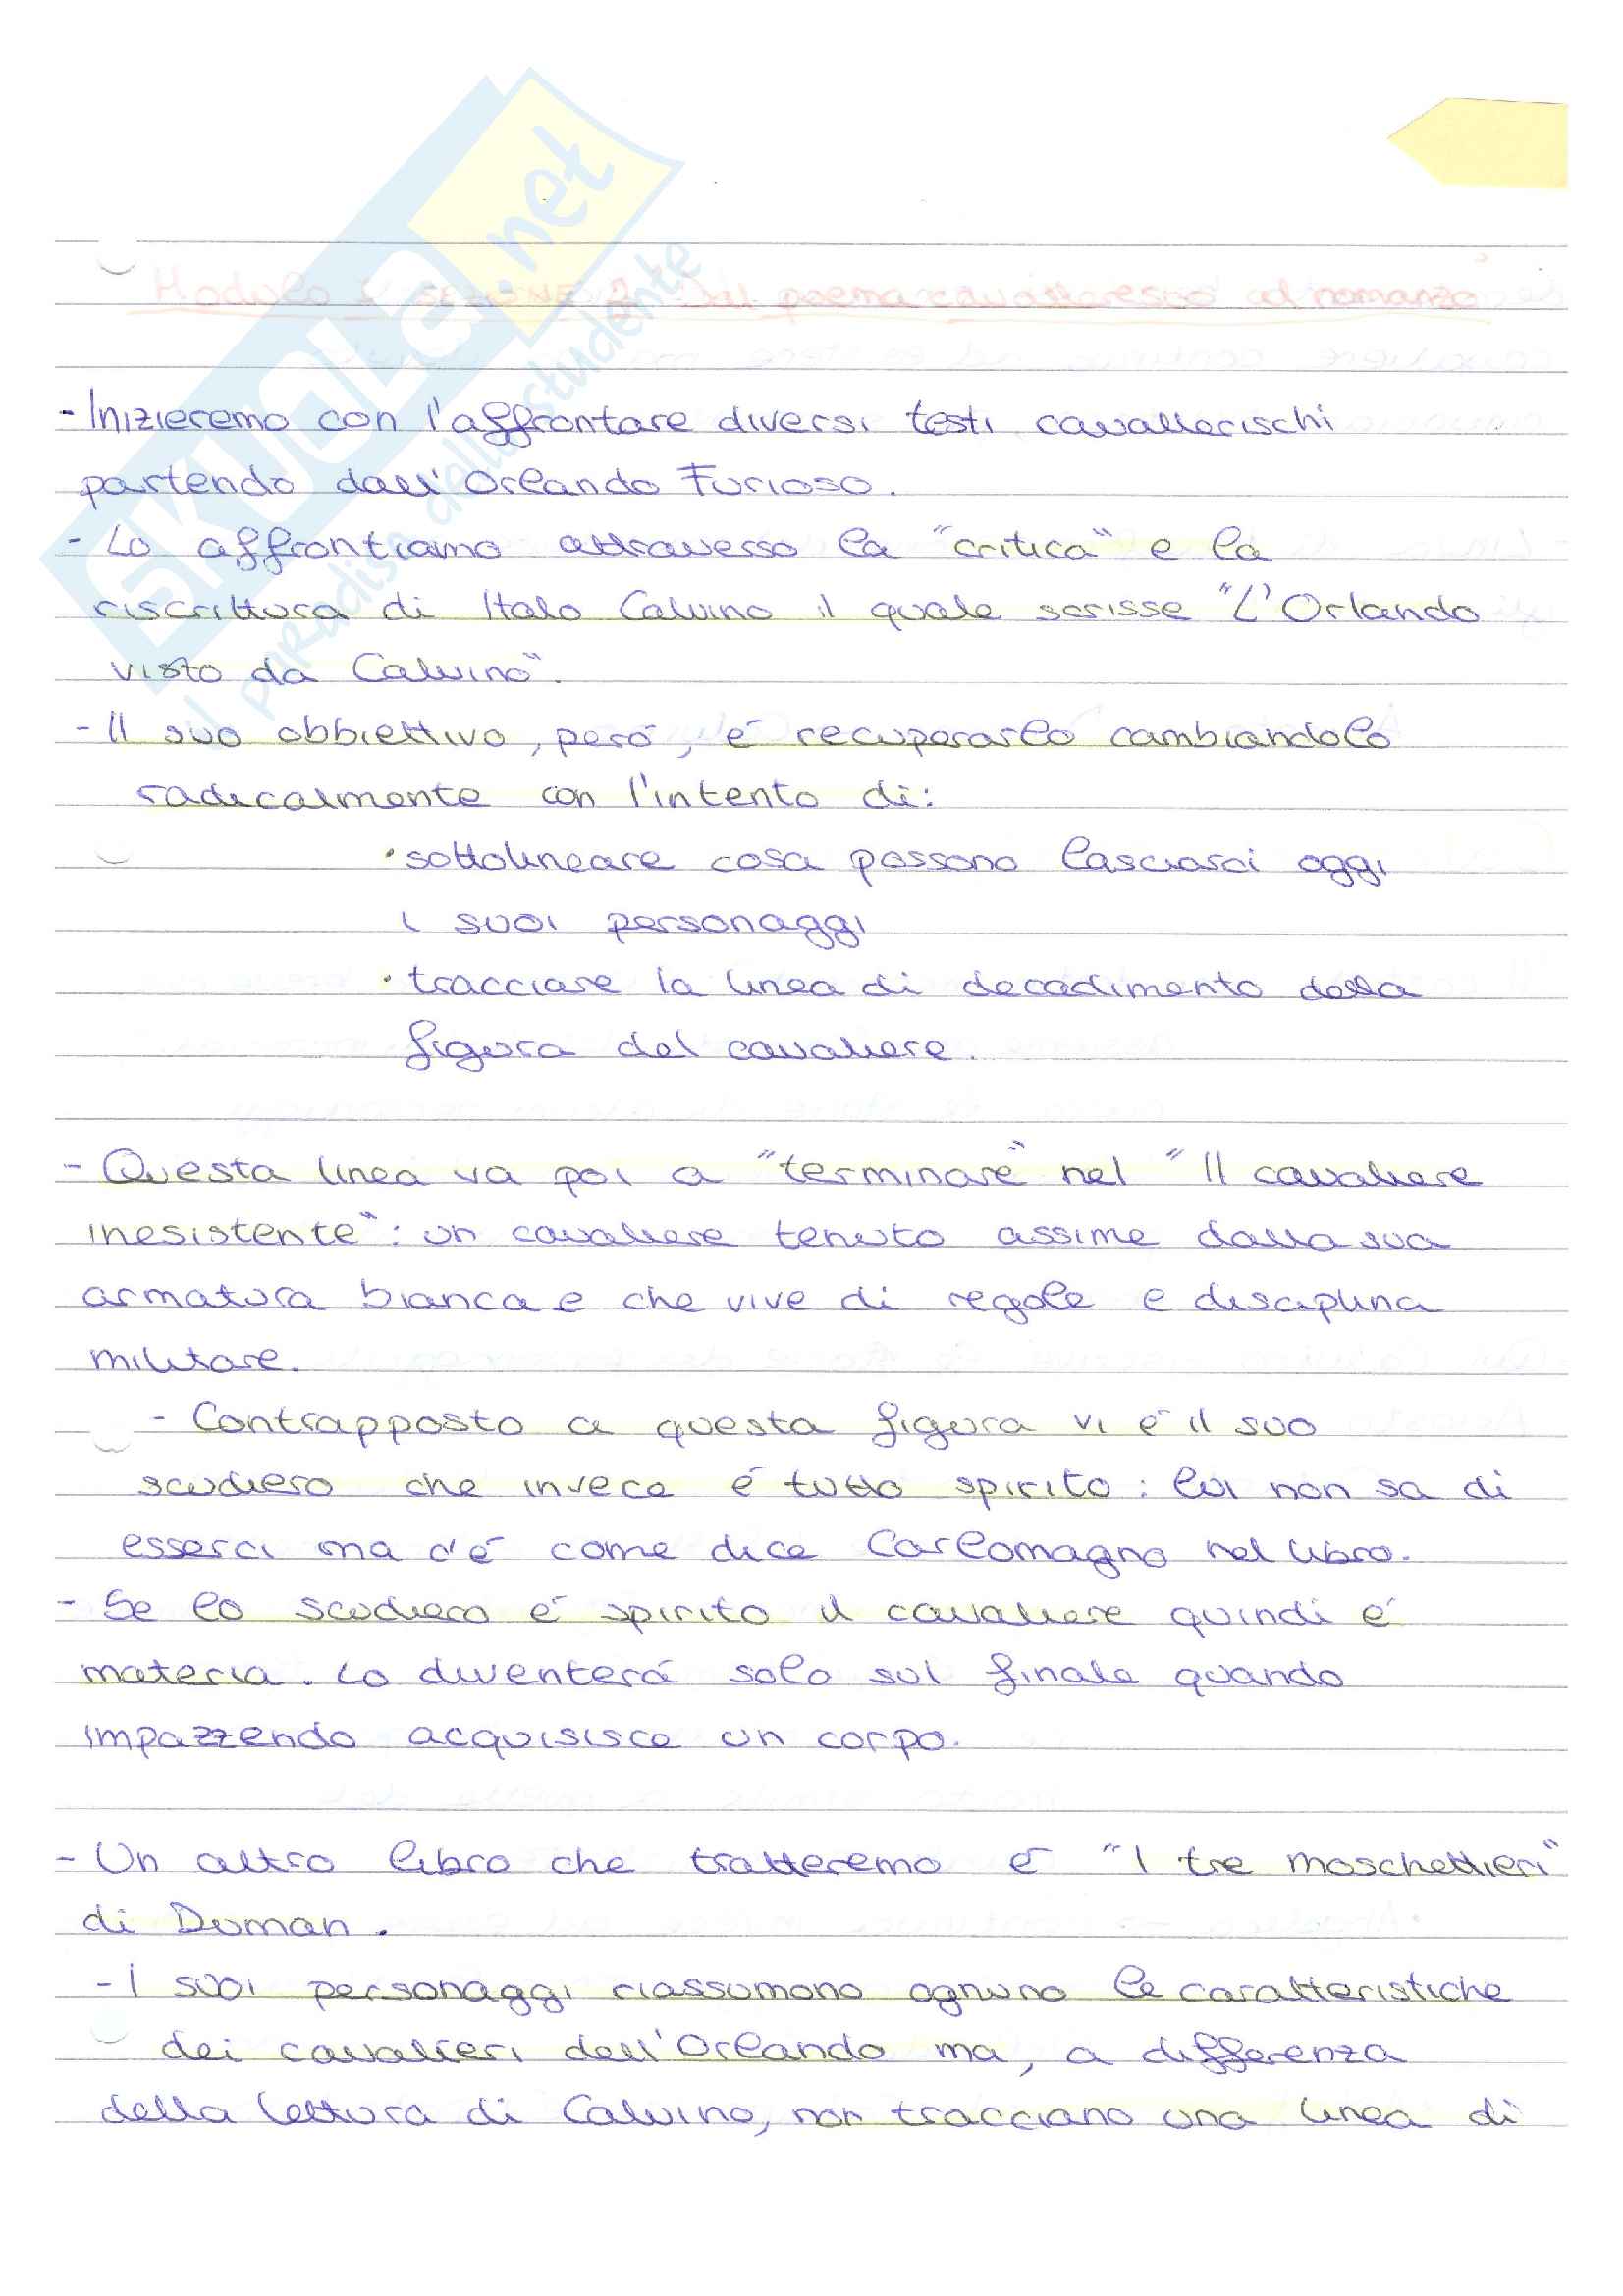 SKUOLA.net
il paradiso dello studente
Modulo 1 dal poema cavalleresco al romanzo
- Inizieremo con l'affrontare diversi testi cavallerischi
partendo dall'Orlando Furioso.
- Lo affrontiamo attraverso la "critica" e la
riscrittura di Italo Calvino il quale scrisse "L'Orlando
visto da Calvino".
- Il suo obbiettivo, però, é recuperarlo cambiandolo
radicalmente con l'intento di:
• sottolineare cosa possono lasciarci oggi
i suoi personaggi
• tracciare la linea di decadimento della
figura del cavaliere.
- Questa linea va poi a "terminare" nel "Il cavaliere
inesistente": un cavaliere tenuto assime dalla sua
armatura bianca e che vive di regole e disciplina
militare.
- Contrapposto a questa figura vi é il suo
scudiero che invece é tutto spirito: lui non sa di
esserci ma c'é come dice Carlomagno nel libro.
- Se lo scudiero é spirito il cavaliere quindi é
materia. Lo diventerá solo sul finale quando
impazzendo acquisisce un corpo.
- Un altro libro che tratteremo é "I tre moschettieri"
di Duman.
- I suoi personaggi riassumono ognuno le caratteristiche
dei cavalieri dell'Orlando ma, a differenza
della lettura di Calvino, non tracciano una linea di